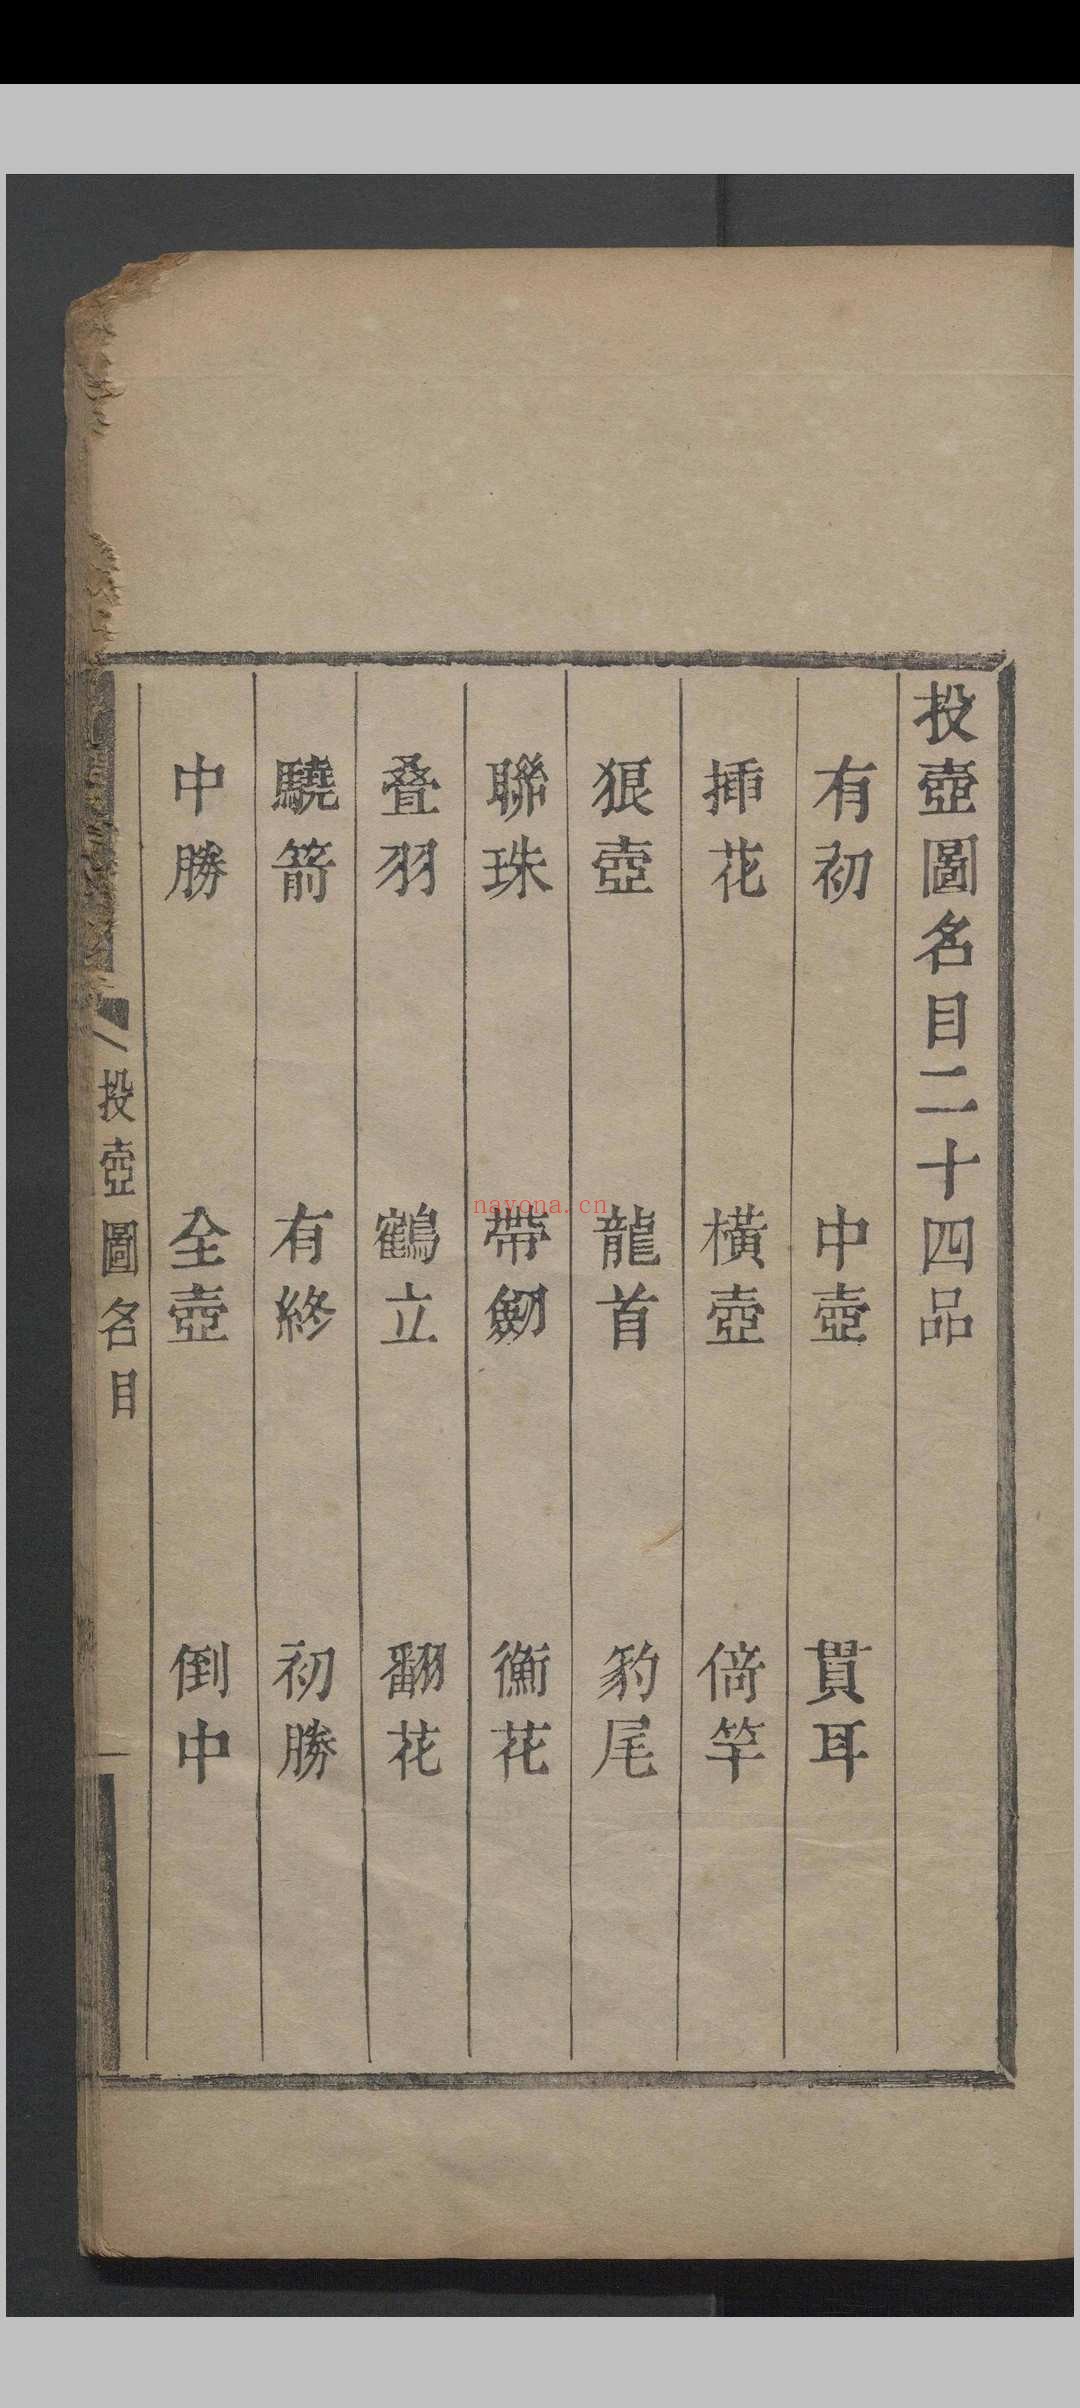 投壺圖名目二十四品
有初 中壺 貫耳
揷花 橫壺 倚竿
狼壺 龍首 豹尾
聯珠 帶劒 衡花
叠羽 鶴立 翻花
驍箭 有終 初勝
中勝 全壺 倒中
投壺圖名目 一
nayona.cn